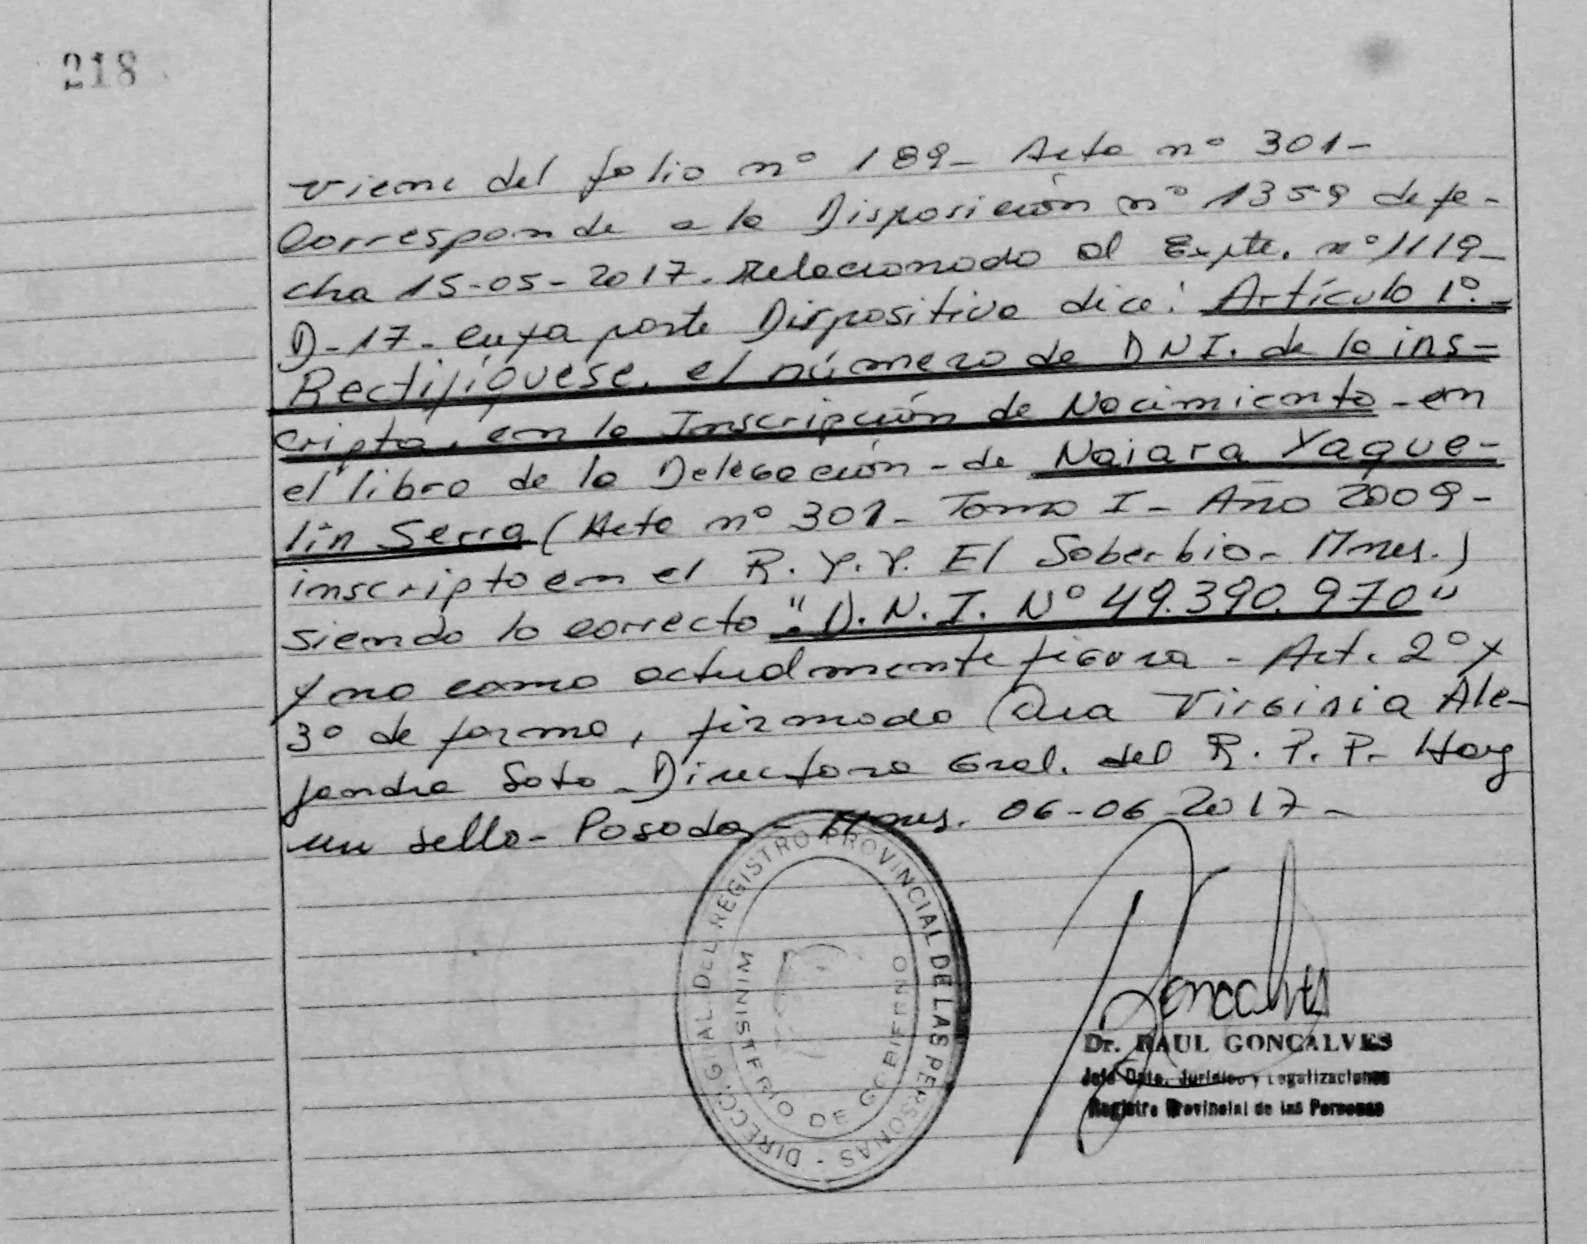 218
Viene del folio nº 189- Acta nº 301-
Corresponde a la Disposición nº 1359 de fe-
cha 15-05-2017. Relacionado al Expte. nº 1119-
D-17- cuya parte Dispositiva dice: Artículo 1º.-
Rectifíquese, el número de DNI. de la ins-
cripta, en la Inscripción de Nacimiento - en
el libro de la Delegación - de Naiara Yaque-
lin Serra (Acta nº 301- Tomo I - Año 2009-
inscripto en el R. P. P. El Soberbio- Mnes.)
siendo lo correcto "D.N.I. Nº 49.390.970"
y no como actualmente figura - Art. 2º y
3º de forma, firmado Dra Virginia Ale-
jandra Soto - Directora Gral. del R. P. P. Hay
un sello- Posadas- Mnes. 06-06-2017-
DIRECC. GRAL. DEL REGISTRO PROVINCIAL DE LAS PERSONAS -
MINISTERIO DE GOBIERNO
Goncalves
Dr. RAUL GONÇALVES
Jefe Dpto. Jurídico y Legalizaciones
Registro Provincial de las Personas